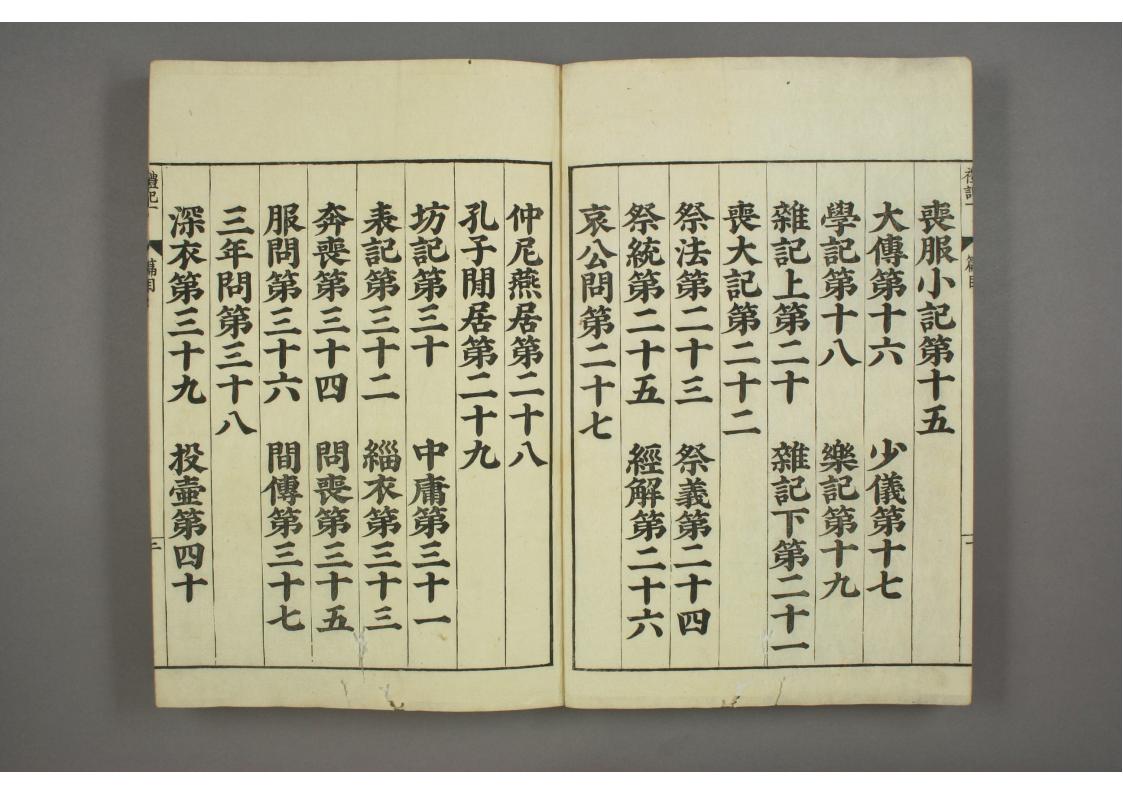 喪服小記第十五
大傳第十六 少儀第十七
學記第十八 樂記第十九
雜記上第二十 雜記下第二十一
喪大記第二十二
祭法第二十三 祭義第二十四
祭統第二十五 經解第二十六
哀公問第二十七
仲尼燕居第二十八
孔子閒居第二十九
坊記第三十 中庸第三十一
表記第三十二 緇衣第三十三
奔喪第三十四 問喪第三十五
服問第三十六 間傳第三十七
三年問第三十八
深衣第三十九 投壺第四十
禮記一 篇目 二